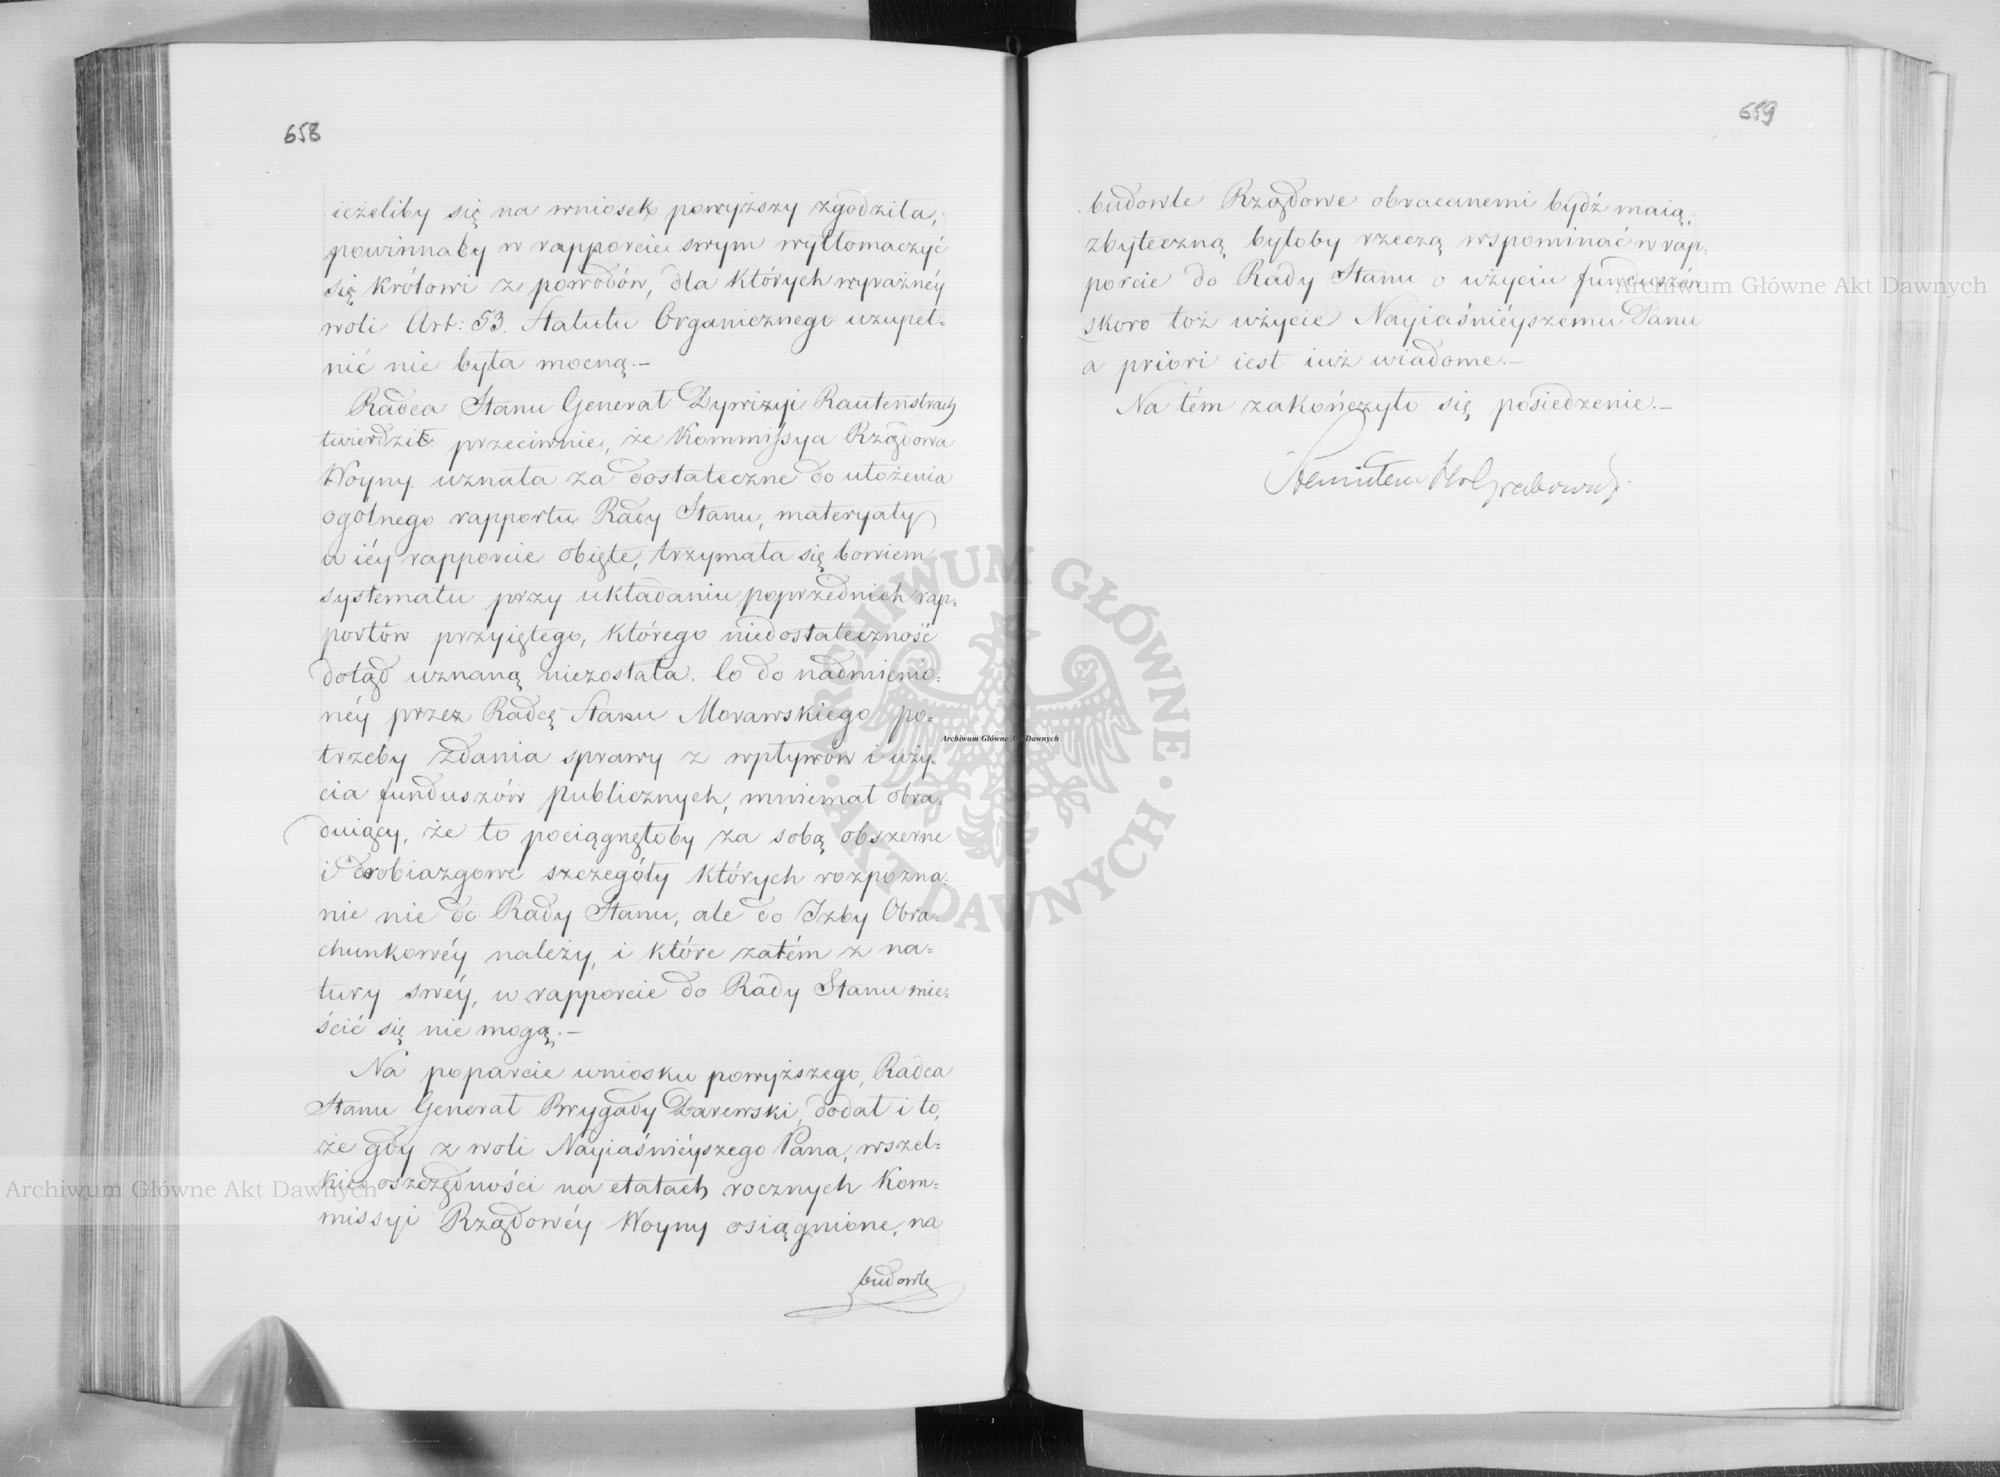 658
ieżeliby się na wniosek powyższy zgodziła,
powinnaby w rapporcie swym wytłomaczyć
się Królowi z powodów, dla których wyraźnéy
woli Art: 53. Statutu Organicznego uzupeł-
nić nie była mocną.—
Radca Stanu Generał Dywizyi Rautenstrauch
twierdził przeciwnie, że Kommissya Rządowa
Woyny uznała za dostateczne do ułożenia
ogólnego rapportu Rady Stanu, materyały
w iéy rapporcie obięte, trzymała się bowiem
systematu przy układaniu poprzednich rap-
portów przyiętego, którego niedostateczność
dotąd uznaną niezostała. Co do nadmienio-
néy przez Radcę Stanu Morawskiego po-
trzeby zdania sprawy z wpływów i uży-
cia funduszów publicznych, mniemał obra-
duiący, że to pociągnęłoby za sobą obszerne
i drobiazgowe szczegóły których rozpozna-
nie nie do Rady Stanu, ale do Izby Obra-
chunkowéy należy, i które zatém z na-
tury swéy, w rapporcie do Rady Stanu mie-
ścić się nie mogą.—
Na poparcie wniosku powyższego, Radca
Stanu Generał Brygady Darewski, dodał i to,
że gdy z woli Nayiaśniéyszego Pana, wszel-
kie oszczędności na etatach rocznych Kom-
missyi Rządowéy Woyny osiągnione, na
budowle
659
budowle Rządowe obracanemi bydź maią,
zbyteczną byłoby rzeczą wspominać w rap-
porcie do Rady Stanu o użyciu funduszów
skoro toż użycie Nayiaśniéyszemu Panu
a priori iest iuż wiadome.—
Na tém zakończyło się posiedzenie.—
Grabowski
Archiwum Główne Akt Dawnych
Archiwum Główne Akt Dawnych
Archiwum Główne Akt Dawnych
ARCHIWUM GŁÓWNE · AKT DAWNYCH ·